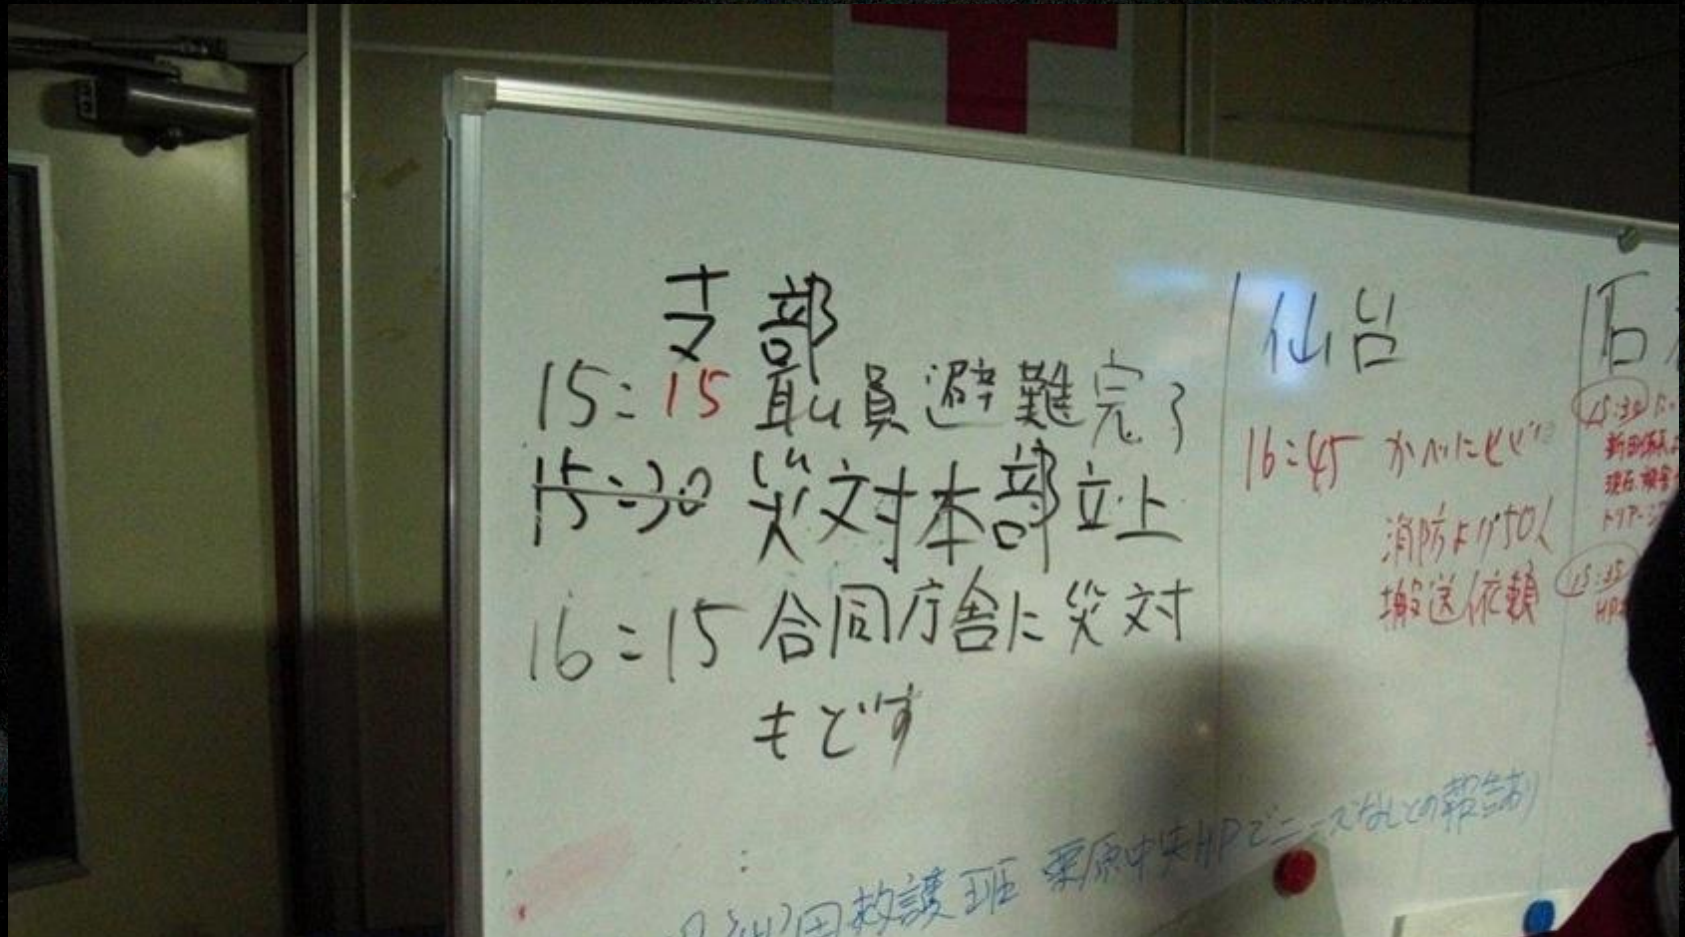 支部
15:15 職員避難完了
15:30 災対本部立上
16:15 合同庁舎に災対
もどす
仙台
16:45 かべにヒビ
消防より50人
搬送依頼
石
15:30
トリアージ
15:35
HP
救護班 栗原中央HPでニーズなしとの報告あり